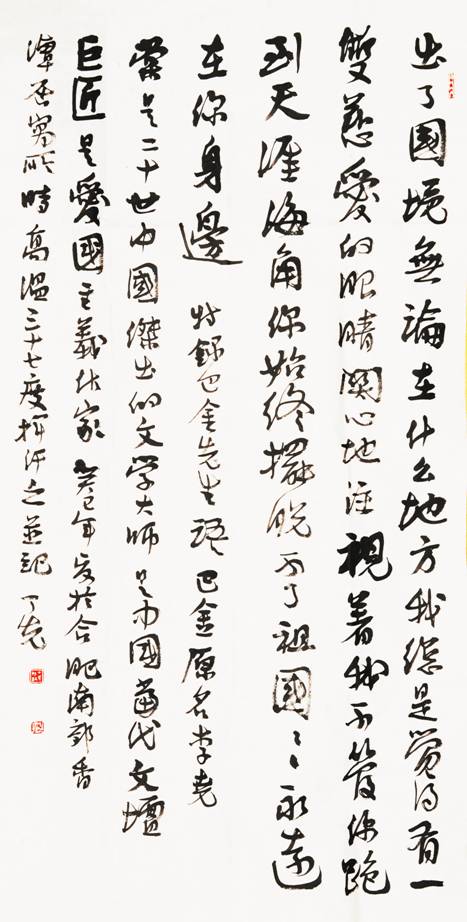 出了國境無論在什么地方我總是覺得有一
雙慈愛的眼睛關心地注視着我不管你跑
到天涯海角你始終擺脫不了祖國〻〻永遠
在你身邊 特錄巴金先生語 巴金原名李堯
棠是二十世中國傑出的文學大師是中國當代文壇
巨匠是愛國主義作家 癸巳年夏於合肥南郊香
潭居寓所時高溫三十七度揮汗之並記